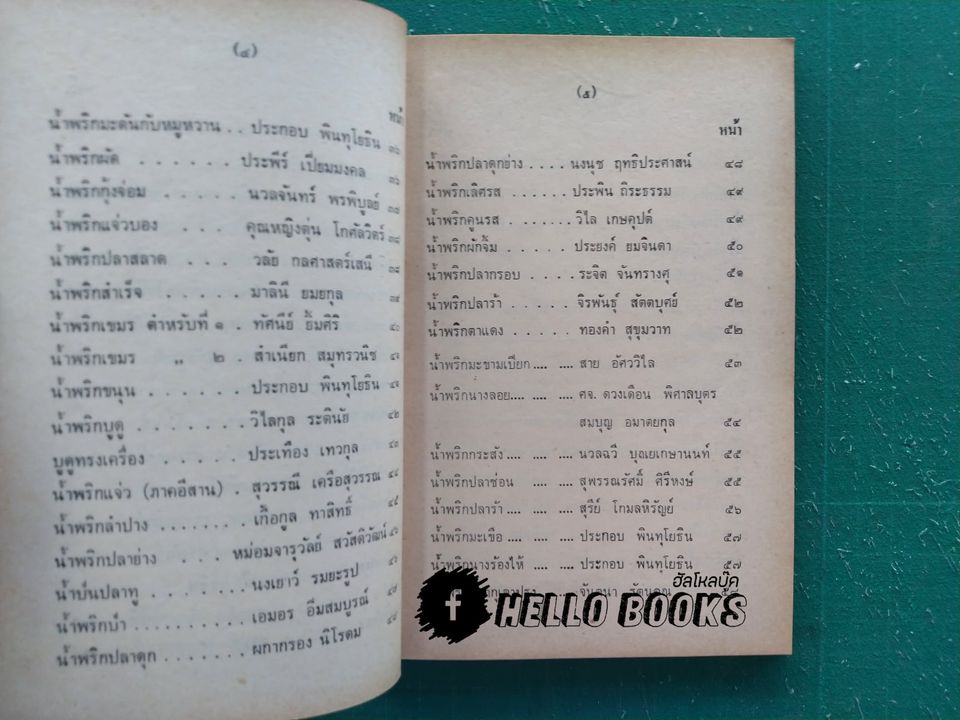 (๔)
หน้า
น้ำพริกมะดันกับหมูหวาน . . ประกอบ พินทุโยธิน ๓๖
น้ำพริกผัด . . . . . . . ประพีร์ เปี่ยมมงคล ๓๖
น้ำพริกกุ้งจ่อม . . . . . . นวลจันทร์ พรพิบูลย์ ๓๗
น้ำพริกแจ่วบอง . . . คุณหญิงตุ่น โกศัลวิตร์ ๓๘
น้ำพริกปลาสลาด . . . วลัย กลศาสตร์เสนี ๓๘
น้ำพริกสำเร็จ . . . . . . มาลินี ยมยกุล ๓๙
น้ำพริกเขมร ตำหรับที่ ๑ . ทัศนีย์ ยิ้มศิริ ๔๐
น้ำพริกเขมร ,, ๒ . สำเนียก สมุทรวนิช ๔๑
น้ำพริกขนุน . . . . . . . ประกอบ พินทุโยธิน ๔๑
น้ำพริกบูดู . . . . . . . . วิไลกุล ระตินัย ๔๒
บูดูทรงเครื่อง . . . . . . ประเทือง เทวกุล ๔๓
น้ำพริกแจ่ว (ภาคอีสาน) . สุวรรณี เครือสุวรรณ ๔๔
น้ำพริกลำปาง . . . . . . . . เกื้อกูล ทาสิทธิ์ ๔๕
น้ำพริกปลาย่าง . . . . หม่อมจารุวัลย์ สวัสดิวัฒน์ ๔๕
น้ำบ้นปลาทู . . . . . . . นงเยาว์ รมยะรูป ๔๖
น้ำพริกบ้า . . . . . . . . . เอมอร อิ่มสมบูรณ์ ๔๗
น้ำพริกปลาดุก . . . . . . . ผกากรอง นิโรดม ๔๘
(๕)
หน้า
น้ำพริกปลาดุกย่าง . . . . นงนุช ฤทธิประศาสน์ ๔๘
น้ำพริกเลิศรส . . . . . . . ประพิน ถิระธรรม ๔๙
น้ำพริกคูนรส . . . . . . . . วิไล เกษคุปต์ ๔๙
น้ำพริกผักจิ้ม . . . . . . ประยงค์ ยมจินดา ๕๐
น้ำพริกปลากรอบ . . . . ระจิต จันทรางศุ ๕๑
น้ำพริกปลาร้า . . . . . . จิรพันธุ์ สัตตบุศย์ ๕๒
น้ำพริกตาแดง . . . . . . ทองคำ สุขุมวาท ๕๒
น้ำพริกมะขามเปียก.... .... สาย อัศววิไล ๕๓
น้ำพริกนางลอย.... .... .... ศจ. ดวงเดือน พิศาลบุตร
สมบุญ อมาตยกุล ๕๔
น้ำพริกกระสัง.... .... .... นวลฉวี บุณยเกษานนท์ ๕๕
น้ำพริกปลาช่อน .... .... สุพรรณรัศมิ์ ศิริหงษ์ ๕๕
น้ำพริกปลาร้า.... .... .... สุรีย์ โกมลหิรัญย์ ๕๖
น้ำพริกมะเขือ .... .... .... ประกอบ พินทุโยธิน ๕๗
น้ำพริกนางร้องไห้ .... .... ประกอบ พินทุโยธิน ๕๗
ฮัลโหลบุ๊ค
f HELLO BOOKS